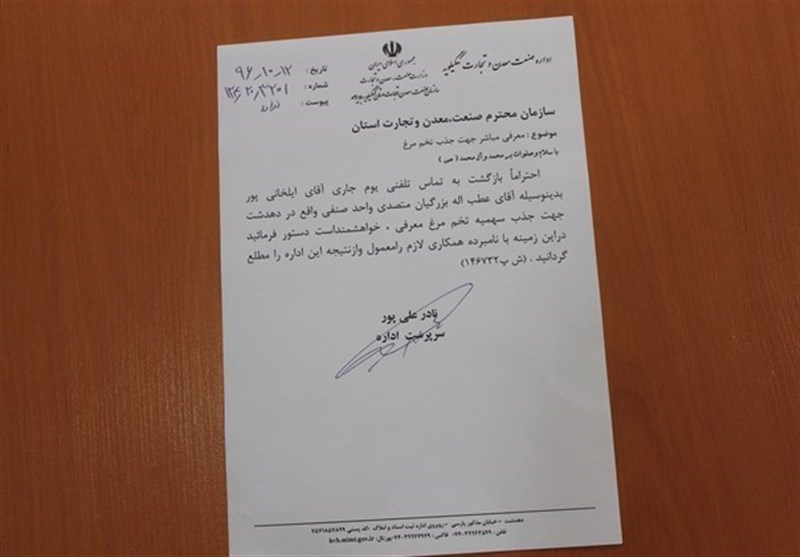 جمهوری اسلامی ایران
وزارت صنعت، معدن و تجارت
اداره صنعت معدن و تجارت کهگیلویه
تاریخ : ۹۶-۱۰-۱۲
شماره :
پیوست : ندارد
سازمان محترم صنعت،معدن وتجارت استان
موضوع : معرفی مباشر جهت جذب تخم مرغ
با سلام و صلوات بر محمد و آل محمد ( ص )
احتراماً بازگشت به تماس تلفنی یوم جاری آقای ایلخانی پور
بدینوسیله آقای عطب اله بزرگیان متصدی واحد صنفی واقع در دهدشت
جهت جذب سهمیه تخم مرغ معرفی ، خواهشمنداست دستور فرمائید
دراین زمینه با نامبرده همکاری لازم رامعمول وازنتیجه این اداره را مطلع
گردانید . (ش پ۱۴۶۷۳۲)
نادر علی پور
سرپرست اداره
دهدشت - خیابان مذکور پارسی - روبروی اداره ثبت اسناد و املاک - کد پستی
تلفن : فاکس : پورتال : kvb.mimt.gov.ir